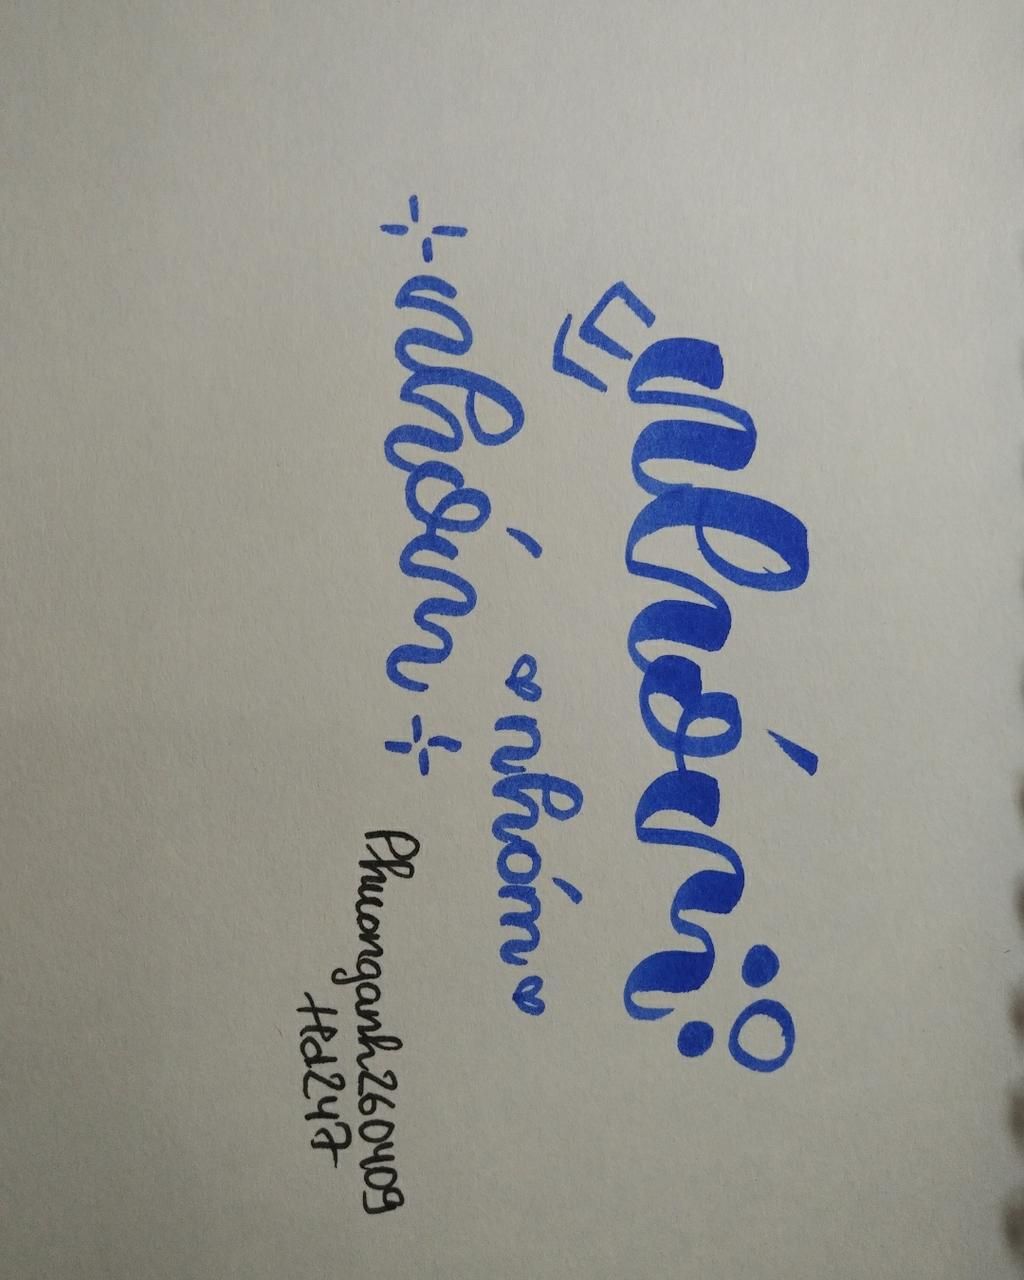 nhóm
nhóm
nhóm
Phuonganh260409
Hd247